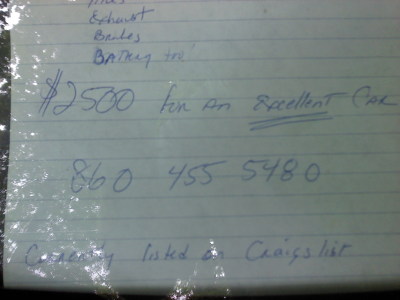 Exhaust
Brakes
Battery too!
$2500 for an Excellent Car
860 455 5480
Currently listed on Craigslist